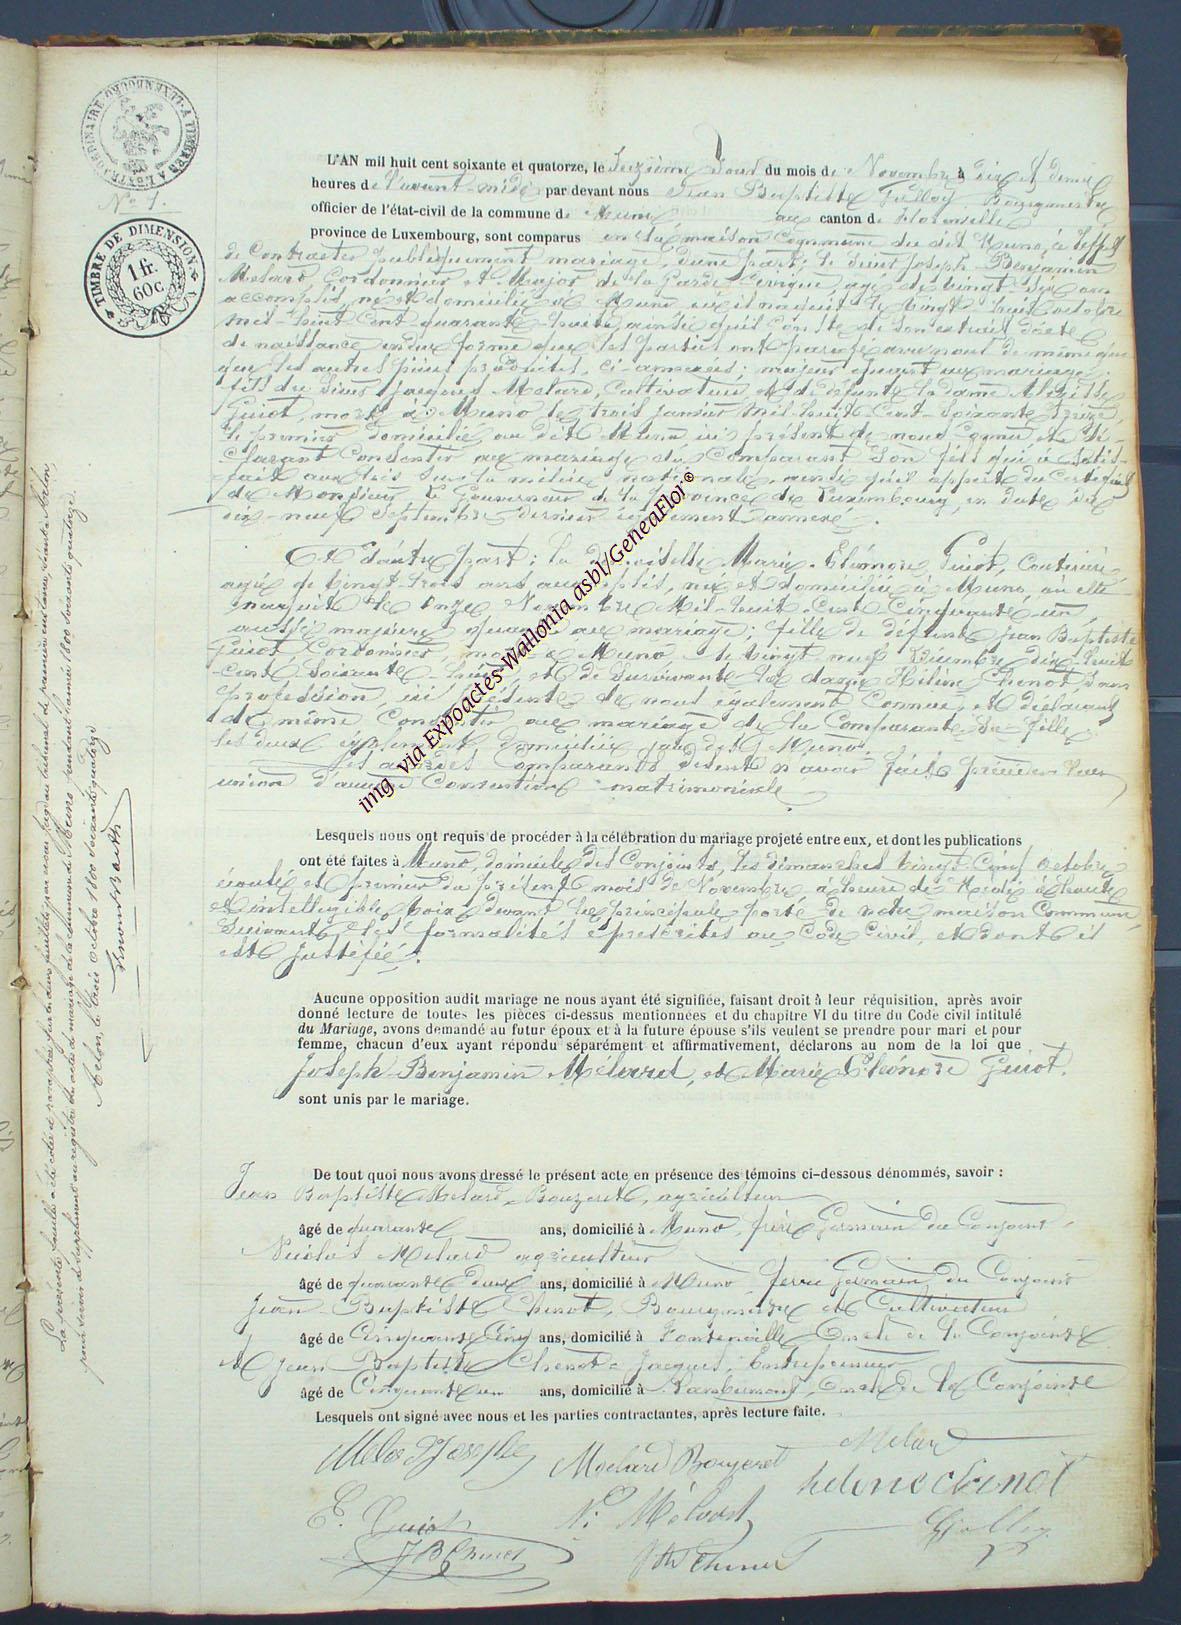 TIMBRE EXTRAORDINAIRE
No 1.
TIMBRE DE DIMENSION
1 fr.
60 c.
L'AN mil huit cent soixante et quatorze, le Seizième Jour du mois de Novembre à dix et demie
heures de l'avant-midi par devant nous Jean Baptiste Bourgmestre
officier de l'état-civil de la commune de Muno au canton de Florenville
province de Luxembourg, sont comparus en la maison Commune du dit Muno, à l'effet
de Contracter publiquement mariage, d'une part: le Sieur Joseph-Benjamin
Melard, Cordonnier et Major de la Garde Civique, agé de vingt six ans
accomplis, né et domicilié à Muno où il naquit le vingt huit octobre
mil-huit-Cent-quarante-huit, ainsi qu'il Conste de son extrait d'acte
de naissance en due forme que les parties ont paraphé avec nous de même que
que les autres pièces produites, ci-annexées; majeur quant au mariage;
fils du Sieur Jacques Melard, Cultivateur et de défunte la dame
Guiot, morte à Muno le trois janvier mil-huit-Cent-Soixante treize,
le premier domicilié au dit Muno ici présent de nous Connu et dé-
clarant Consentir au mariage du Comparant Son fils qui a satis-
fait aux lois sur la milice nationale, ainsi qu'il appert du Certificat
de Monsieur le Gouverneur de la Province de Luxembourg, en date du
dix-neuf Septembre dernier également annexé.
Et d'autre part: la demoiselle Marie-Eléonore Guiot, Couturière,
agée de vingt-trois ans accomplis, née et domiciliée à Muno, où elle
naquit le onze Novembre Mil-huit-Cent-Cinquante-un,
aussi majeure quant au mariage; fille de défunt Jean Baptiste
Guiot Cordonnier, mort à Muno le vingt neuf Décembre dix-huit
-cent-Soixante-huit, et de Survivante la dame Hélène Chenot Sans
profession, ici présente de nous également Connue, et déclarant
de même Consentir au mariage de la Comparante Sa fille,
les deux également domiciliées au dit Muno.
Les Comparants disent n'avoir fait précéder leur
union d'aucune Convention matrimoniale
Lesquels nous ont requis de procéder à la célébration du mariage projeté entre eux, et dont les publications
ont été faites à Muno, domicile des Conjoints, les dimanches vingt Cinq octobre
écoulé et premier du présent mois de Novembre à l'heure de Midi à haute
et intelligible voix devant la principale porte de notre maison Commune,
Suivant les formalités prescrites au Code Civil, et dont il
est justifié.
Aucune opposition audit mariage ne nous ayant été signifiée, faisant droit à leur réquisition, après avoir
donné lecture de toutes les pièces ci-dessus mentionnées et du chapitre VI du titre du Code civil intitulé
du Mariage, avons demandé au futur époux et à la future épouse s'ils veulent se prendre pour mari et pour
femme, chacun d'eux ayant répondu séparément et affirmativement, déclarons au nom de la loi que
Joseph-Benjamin Mélard, et Marie Eléonore Guiot.
sont unis par le mariage.
De tout quoi nous avons dressé le présent acte en présence des témoins ci-dessous dénommés, savoir :
Jean Baptiste Melard-Bouzeret, agriculteur
âgé de quarante ans, domicilié à Muno, frère Germain du Conjoint,
Nicolas Melard agriculteur
âgé de quarante deux ans, domicilié à Muno frère Germain du Conjoint
Jean-Baptiste Chenot, Bourgmestre et Cultivateur
âgé de Cinquante Cinq ans, domicilié à Fontenoille, Oncle de la Conjointe
et Jean Baptiste Chenot-Jacques, Entrepreneur
âgé de Cinquante un ans, domicilié à Lambermont, Oncle de la Conjointe
Lesquels ont signé avec nous et les parties contractantes, après lecture faite.
Melard Joseph
Melard Bouzeret
Melard
helene chenot
E. Guiot
N. Mélard
JB Chenot
La présente feuille a été cotée et paraphée par nous juge au tribunal de première instance, séant à Arlon,
pour servir de supplément au registre des actes de mariage de la commune de Muno pendant l'année 1800 soixante quatorze.
Arlon, le trois octobre 1800 soixante quatorze
img via Expoactes-Wallonia asbl/GeneaFlor©